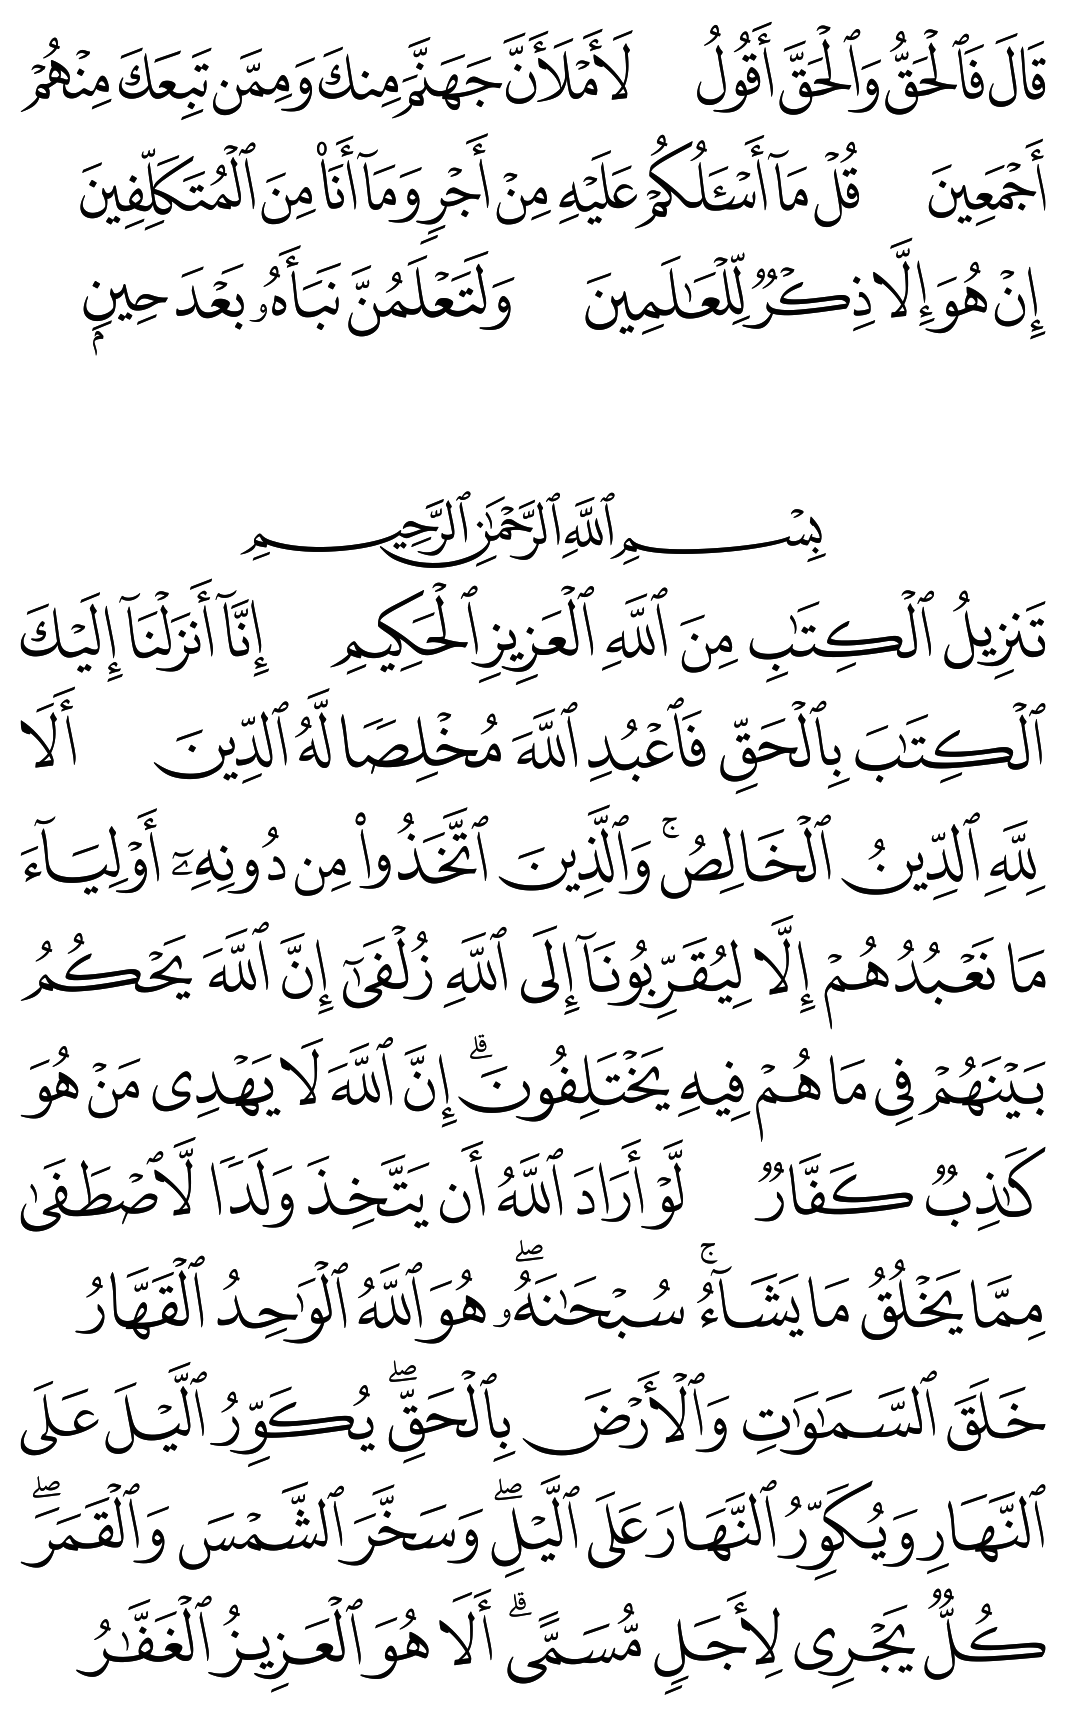 قَالَ فَٱلْحَقُّ وَٱلْحَقَّ أَقُولُ لَأَمْلَأَنَّ جَهَنَّمَ مِنكَ وَمِمَّن تَبِعَكَ مِنْهُمْ
أَجْمَعِينَ قُلْ مَآ أَسْـَٔلُكُمْ عَلَيْهِ مِنْ أَجْرٍ وَمَآ أَنَا۠ مِنَ ٱلْمُتَكَلِّفِينَ
إِنْ هُوَ إِلَّا ذِكْرٌ لِّلْعَـٰلَمِينَ وَلَتَعْلَمُنَّ نَبَأَهُۥ بَعْدَ حِينٍۭ
بِسْمِ ٱللَّهِ ٱلرَّحْمَـٰنِ ٱلرَّحِيمِ
تَنزِيلُ ٱلْكِتَـٰبِ مِنَ ٱللَّهِ ٱلْعَزِيزِ ٱلْحَكِيمِ إِنَّآ أَنزَلْنَآ إِلَيْكَ
ٱلْكِتَـٰبَ بِٱلْحَقِّ فَٱعْبُدِ ٱللَّهَ مُخْلِصًا لَّهُ ٱلدِّينَ أَلَا
لِلَّهِ ٱلدِّينُ ٱلْخَالِصُ ۚ وَٱلَّذِينَ ٱتَّخَذُوا۟ مِن دُونِهِۦٓ أَوْلِيَآءَ
مَا نَعْبُدُهُمْ إِلَّا لِيُقَرِّبُونَآ إِلَى ٱللَّهِ زُلْفَىٰٓ إِنَّ ٱللَّهَ يَحْكُمُ
بَيْنَهُمْ فِى مَا هُمْ فِيهِ يَخْتَلِفُونَ ۗ إِنَّ ٱللَّهَ لَا يَهْدِى مَنْ هُوَ
كَـٰذِبٌ كَفَّارٌ لَّوْ أَرَادَ ٱللَّهُ أَن يَتَّخِذَ وَلَدًا لَّٱصْطَفَىٰ
مِمَّا يَخْلُقُ مَا يَشَآءُ ۚ سُبْحَـٰنَهُۥ ۖ هُوَ ٱللَّهُ ٱلْوَٰحِدُ ٱلْقَهَّارُ
خَلَقَ ٱلسَّمَـٰوَٰتِ وَٱلْأَرْضَ بِٱلْحَقِّ ۖ يُكَوِّرُ ٱلَّيْلَ عَلَى
ٱلنَّهَارِ وَيُكَوِّرُ ٱلنَّهَارَ عَلَى ٱلَّيْلِ ۖ وَسَخَّرَ ٱلشَّمْسَ وَٱلْقَمَرَ ۖ
كُلٌّ يَجْرِى لِأَجَلٍ مُّسَمًّى ۗ أَلَا هُوَ ٱلْعَزِيزُ ٱلْغَفَّـٰرُ